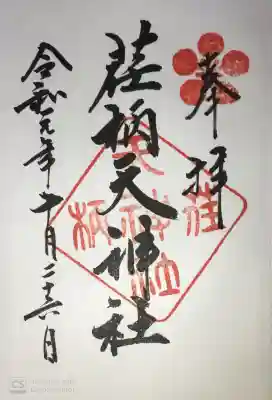 奉拝
荏柄天神社
荏柄天神社
令和元年十月二十六日
CS